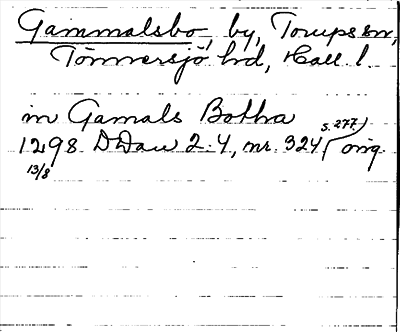 Gammalsbo, by, Torups sn,
Tönnersjö hd, Hall. l.
in Gamals Botha
1298 DDan 2:4, nr. 324 (s. 277) orig.
13/8